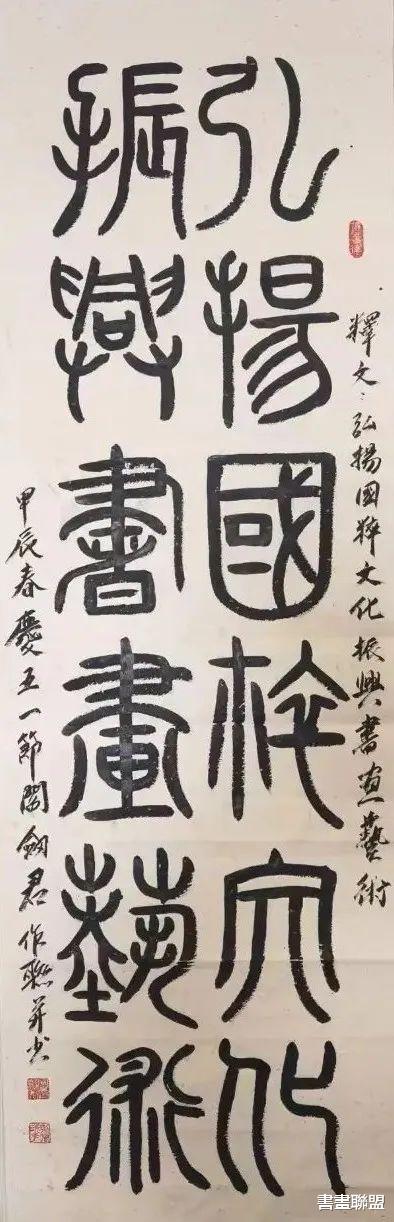 釋文：弘揚国粹文化振興書画藝術
弘揚國粹文化
振興書畫藝術
甲辰春慶五一節閻劍君作聯并書
書畫聯盟